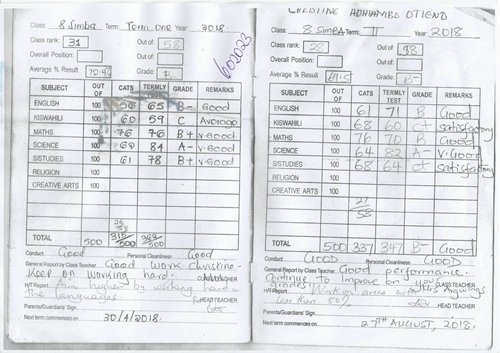 Class 8 Simba Term: Term One Year 2018.
Class rank: 31 Out of: 58
Overall Position: Out of:
Average % Result Grade: B
SUBJECT OUT OF CATS TERMLY TEST GRADE REMARKS
ENGLISH 100 56 65 B- Good
KISWAHILI 100 60 59 C Average
MATHS 100 76 76 B+ V.Good
SCIENCE 100 84 A- V.Good
S/STUDIES 100 61 78 B+ V.Good
RELIGION 100
CREATIVE ARTS 100
TOTAL 500
Conduct Good Personal Cleanliness: Good
General Report by Class Teacher Good work christine.
Keep on working hard. CLASS TEACHER
H/T Report Aim higher by working hard in
the languages. HEAD TEACHER
Parents/Guardians' Sign
Next term commences on 30/4/2018.
602023
CHRISTINE ADHIAMBO OTIENO
Class: 8 SIMBA Term: II Year 2018
Class rank: 28 Out of:
Overall Position: Out of:
Average % Result 69.5 Grade: B-
SUBJECT OUT OF CATS TERMLY TEST GRADE REMARKS
ENGLISH 100 61 71 B Good
KISWAHILI 100 68 60 C+ satisfactory
MATHS 100 76 70 B Good
SCIENCE 100 64 82 A- V.Good
S/STUDIES 100 68 64 C+ satisfactory
RELIGION 100
CREATIVE ARTS 100
21/58
TOTAL 500 337 347 B- Good
Conduct GOOD Personal Cleanliness: GOOD
General Report by Class Teacher Good performance.
Continue to improve on your
grades. CLASS TEACHER
H/T Report: Work on areas with
less than 80% HEAD TEACHER
Parents/Guardians' Sign
Next term commences on 27TH AUGUST, 2018.